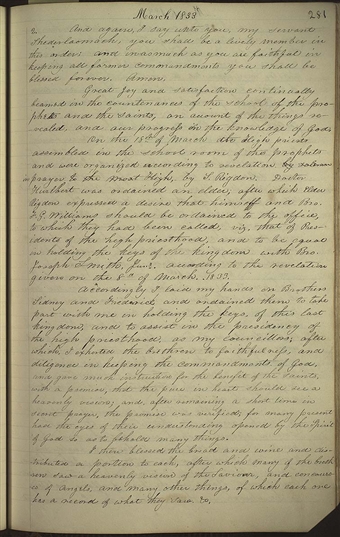 March 1833
281
2. And again, I say unto you, my servant
Shederlaomach, you shall be a lively member in
this order; and inasmuch as you are faithful in
keeping all former commandments you shall be
blessed forever. Amen.
Great joy and satisfaction continually
beamed in the countenances of the school of the Pro-
phets and the Saints, on account of the things re-
vealed, and our progress in the knowledge of God.
On the 18th of March the High priests
assembled in the school room of the Prophets
and were organized according to revelation by solemn
prayer to the most High, by S. Rigdon. Doctor
Hurlburt was ordained an elder; after which Elder
Rigdon expressed a desire that himself and Bro.
F. G. Williams should be ordained to the office,
to which they had been called, viz, that of Pres-
idents of the high priesthood, and to be equal
in holding the keys of the Kingdom with Bro.
Joseph Smith, jun'r. according to the revelation
given on the 8th of March, 1833.
Accordingly I laid my hands on Brothers
Sidney and Frederick, and ordained them to take
part with me in holding the keys, of this last
kingdom, and to assist in the presidency of
the high priesthood, as my councillors; after
which I exhorted the brethren to faithfulness, and
diligence in keeping the commandments of God,
and gave much instruction for the benefit of the Saints,
with a promise, that the pure in heart should see a
heavenly vision; and, after remaining a short time in
secret prayer, the promise was verified; for many present
had the eyes of their understanding opened by the Spirit
of God so as to behold many things.
I then blessed the bread and wine and dis-
tributed a portion to each, after which many of the breth-
ren saw a heavenly vision of the Saviour, and concourses
of angels, and many other things, of which each one
has a record of what they saw. &c,